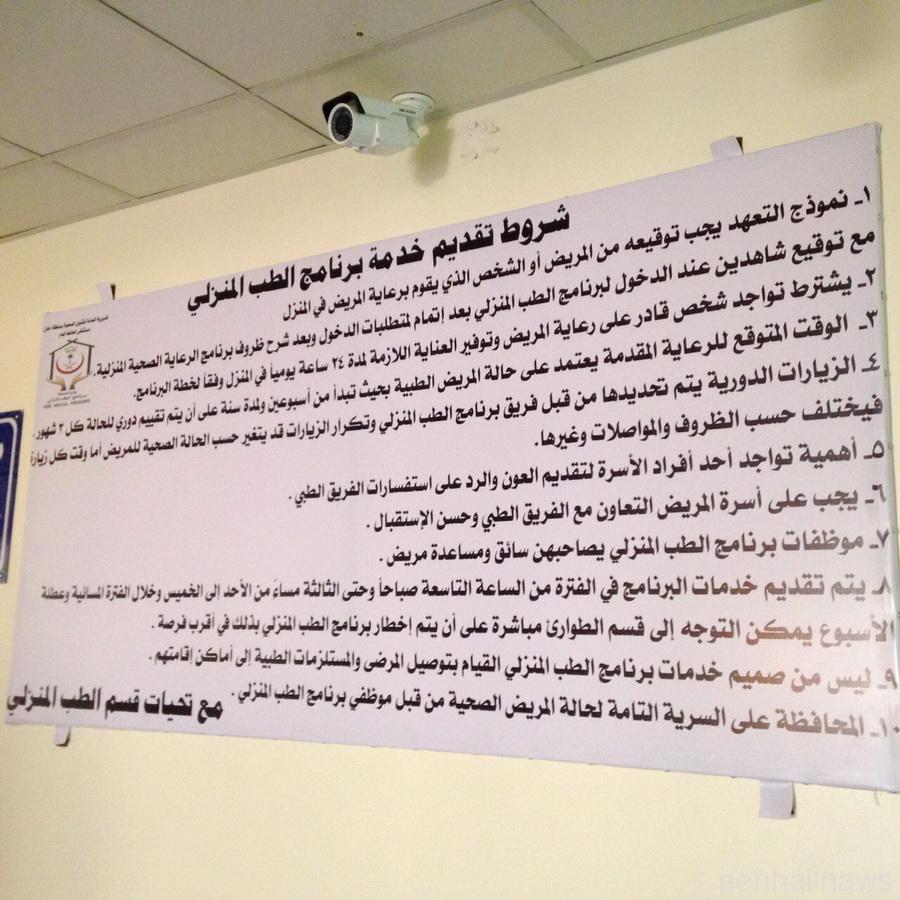 شروط تقديم خدمة برنامج الطب المنزلي
١ـ نموذج التعهد يجب توقيعه من المريض أو الشخص الذي يقوم برعاية المريض في المنزل
مع توقيع شاهدين عند الدخول لبرنامج الطب المنزلي بعد إتمام لمتطلبات الدخول وبعد شرح ظروف برنامج الرعاية الصحية المنزلية.
٢ـ يشترط تواجد شخص قادر على رعاية المريض وتوفير العناية اللازمة لمدة ٢٤ ساعة يومياً في المنزل وفقاً لخطة البرنامج.
٣ـ الوقت المتوقع للرعاية المقدمة يعتمد على حالة المريض الطبية بحيث تبدأ من أسبوعين ولمدة سنة على أن يتم تقييم دوري للحالة كل ٣ شهور.
٤ـ الزيارات الدورية يتم تحديدها من قبل فريق برنامج الطب المنزلي وتكرار الزيارات قد يتغير حسب الحالة الصحية للمريض أما وقت كل زيارة
فيختلف حسب الظروف والمواصلات وغيرها.
٥ـ أهمية تواجد أحد أفراد الأسرة لتقديم العون والرد على استفسارات الفريق الطبي.
٦ـ يجب على أسرة المريض التعاون مع الفريق الطبي وحسن الإستقبال.
٧ـ موظفات برنامج الطب المنزلي يصاحبهن سائق ومساعدة مريض.
٨ـ يتم تقديم خدمات البرنامج في الفترة من الساعة التاسعة صباحاً وحتى الثالثة مساءً من الأحد إلى الخميس وخلال الفترة المسائية وعطلة
الأسبوع يمكن التوجه إلى قسم الطوارئ مباشرة على أن يتم إخطار برنامج الطب المنزلي بذلك في أقرب فرصة.
٩ـ ليس من صميم خدمات برنامج الطب المنزلي القيام بتوصيل المرضى والمستلزمات الطبية إلى أماكن إقامتهم.
١٠ـ المحافظة على السرية التامة لحالة المريض الصحية من قبل موظفي برنامج الطب المنزلي.
مع تحيات قسم الطب المنزلي
aenhailnaws